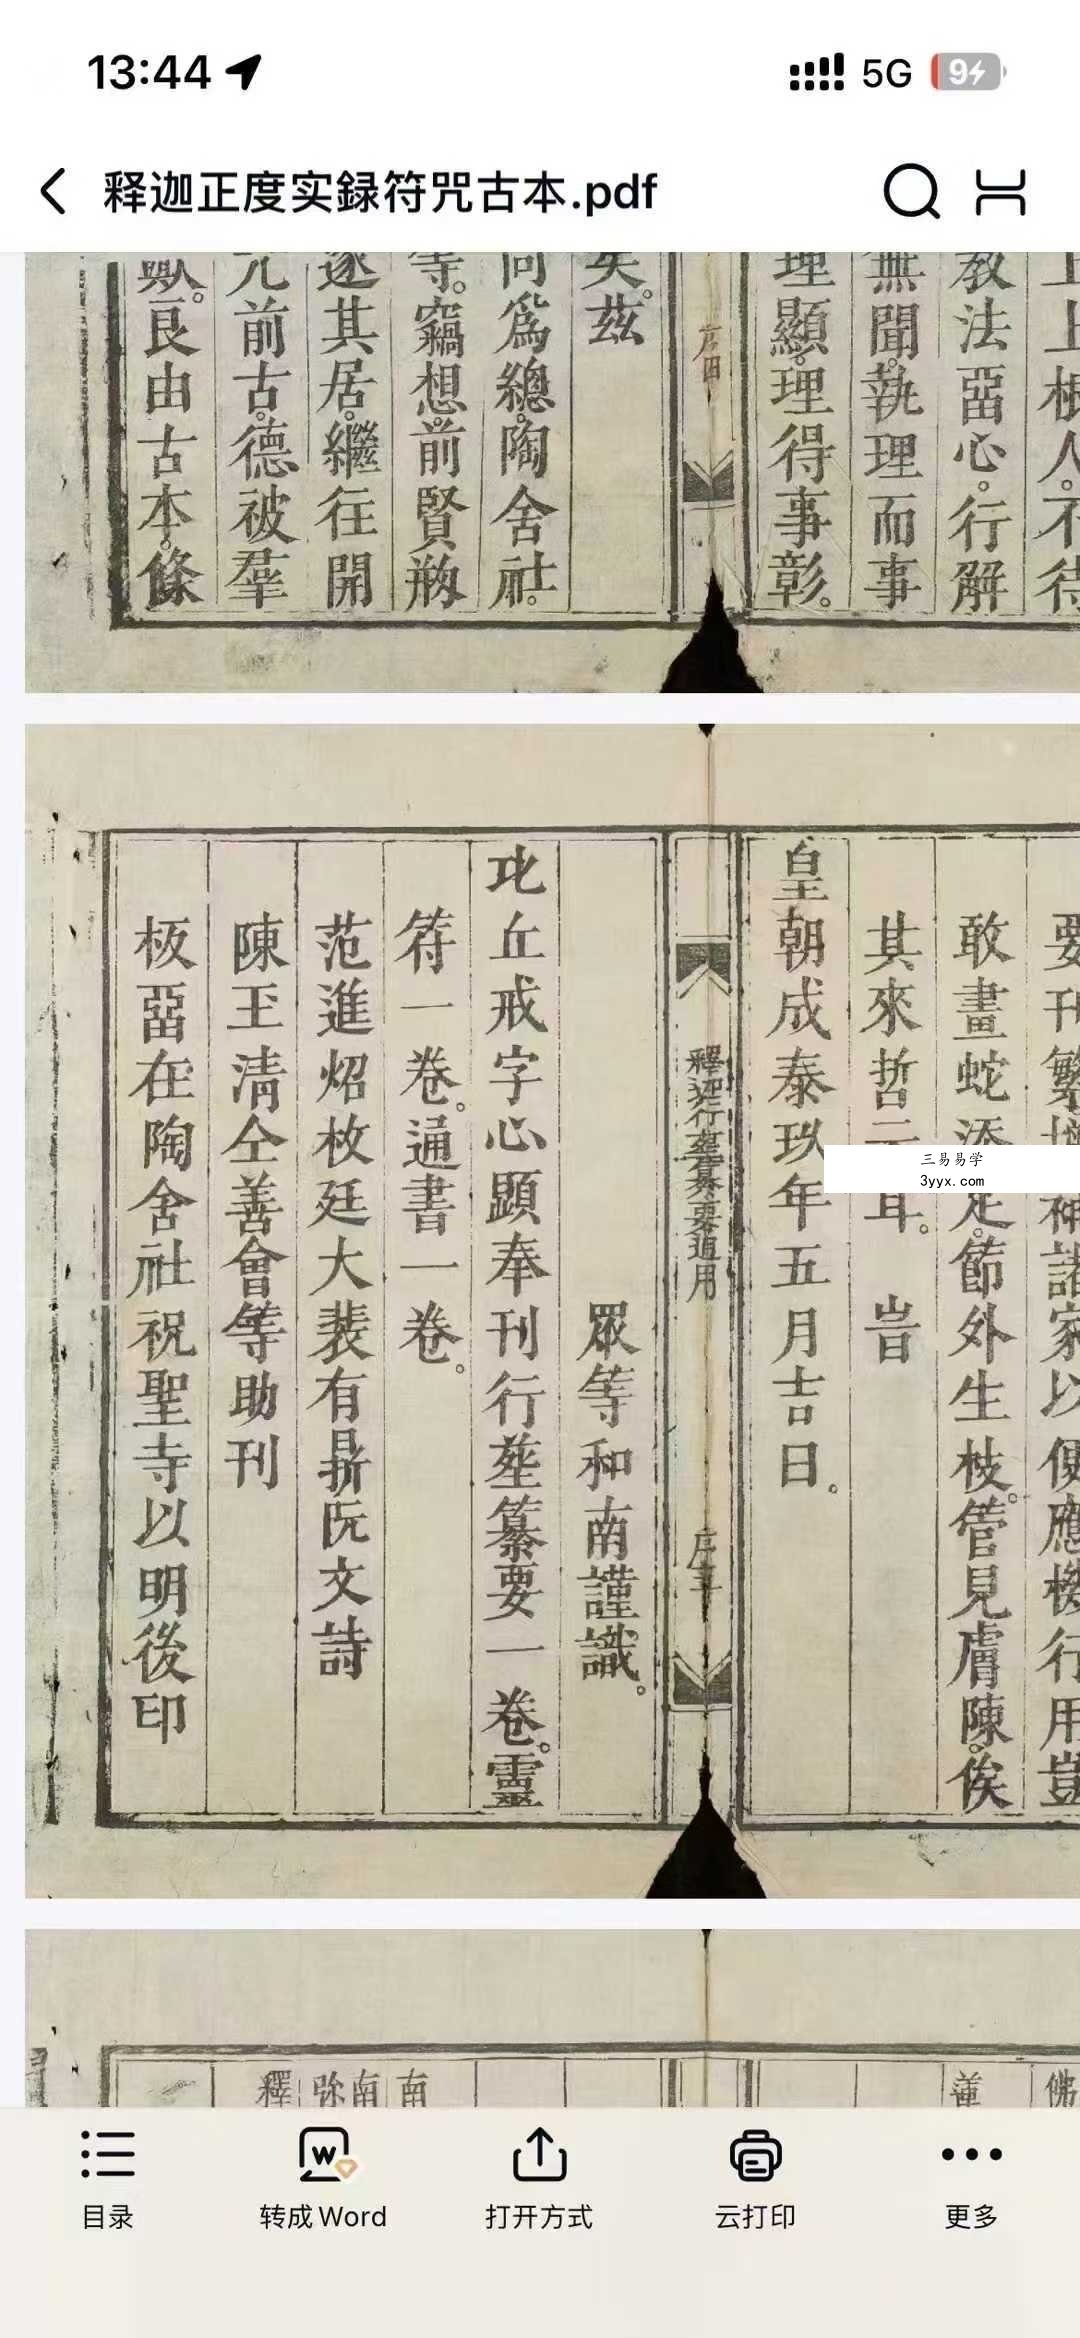 13:44
5G
9
释迦正度实録符咒古本.pdf
上上根人。不待
教法畱心。行解
無聞。執理而事
理顯。理得事彰。
序四
矣。茲
向爲總。陶舍社。
等。竊想。前賢
遂其居。繼往開
前古。德被羣
歟。良由古本。條
要刊繁增補諸家以便應機行用豈
敢畫蛇添足。節外生枝。管見膚陳。俟
其來哲云耳。旹
皇朝成泰玖年五月吉日。
三易易学
3yyx.com
釋迦行塟纂要通用
序五
眾等和南謹識。
比丘戒字心顕奉刊行塟纂要一卷。靈
符一卷。通書一卷。
范進炤枚廷大裴有鼎阮文詩
陳玉清仝善會等助刊
板畱在陶舍社祝聖寺以明後印
佛
蓮
南
南
弥
釋
目录
转成Word
打开方式
云打印
更多